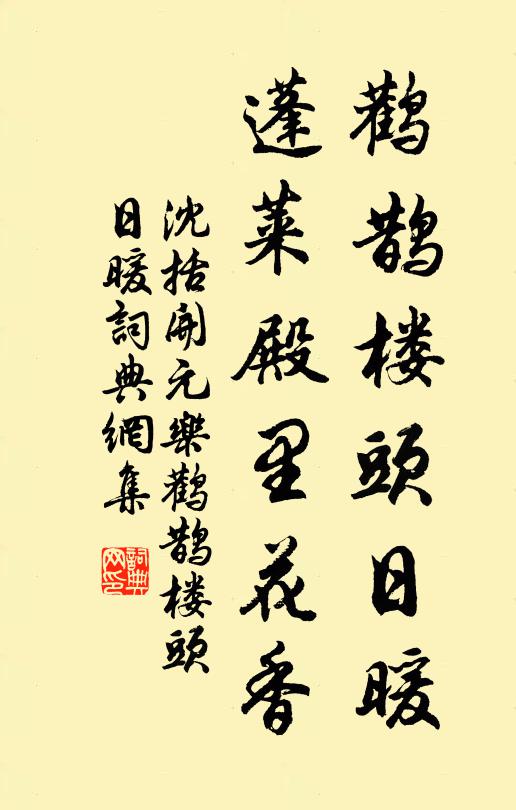 鹳鹊楼頭日暖
蓬莱殿里花香
沈括開元樂鹳鹊楼頭
日暖詞典網集
詞典网印